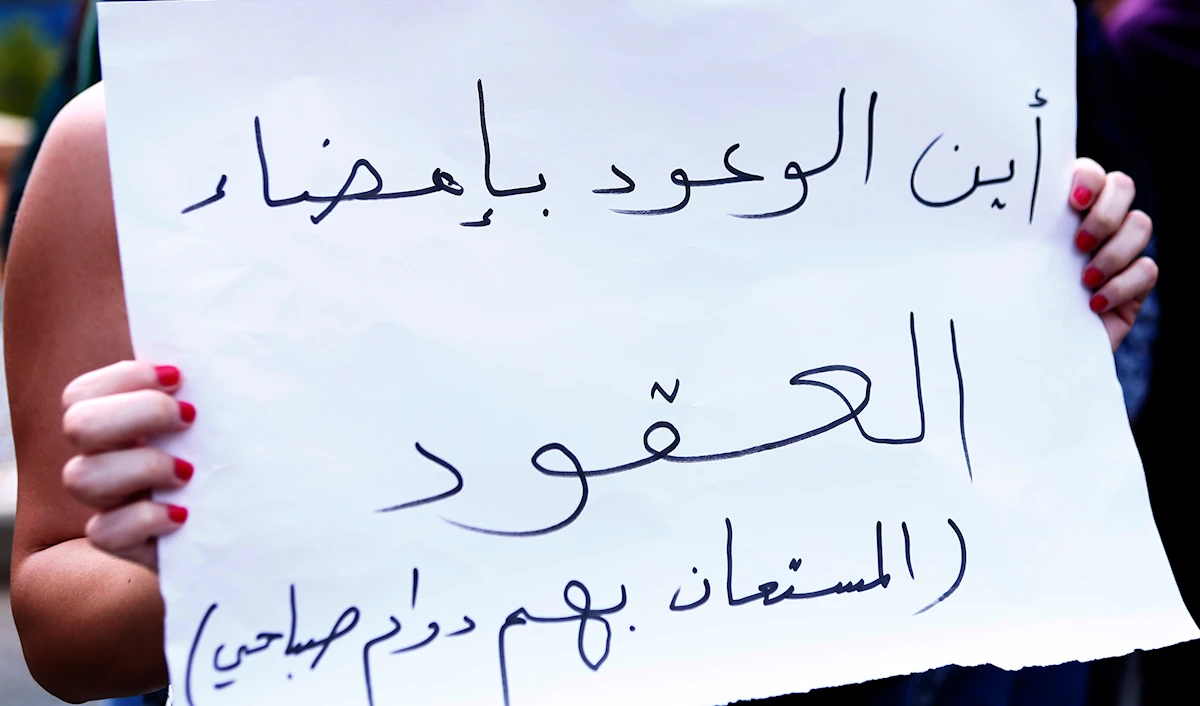 أين الوعود بإمضاء
العقود
(المستعان بهم دوام صباحي)